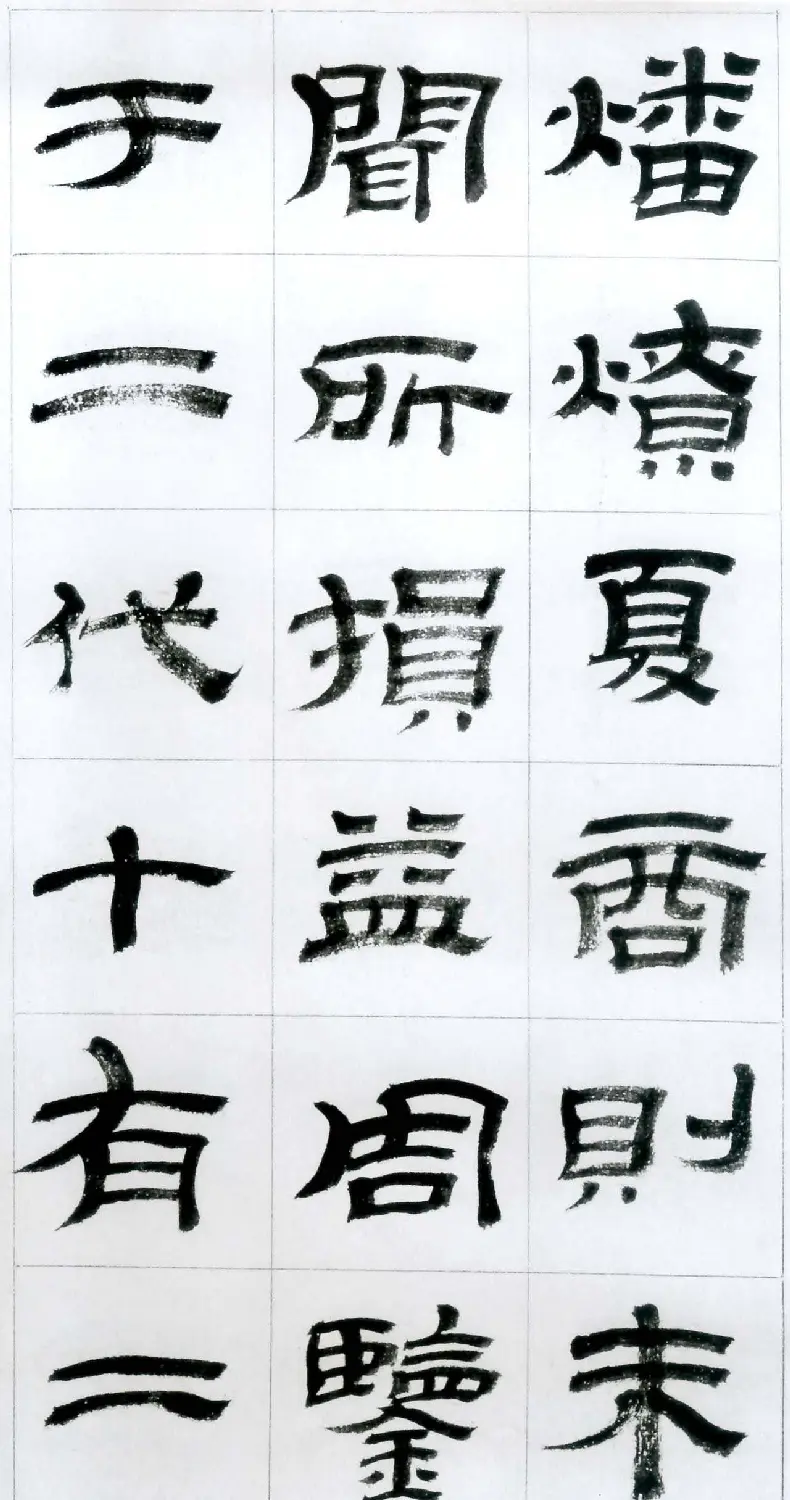 燔燎夏商則未
聞所損益周鑒
于二代十有二